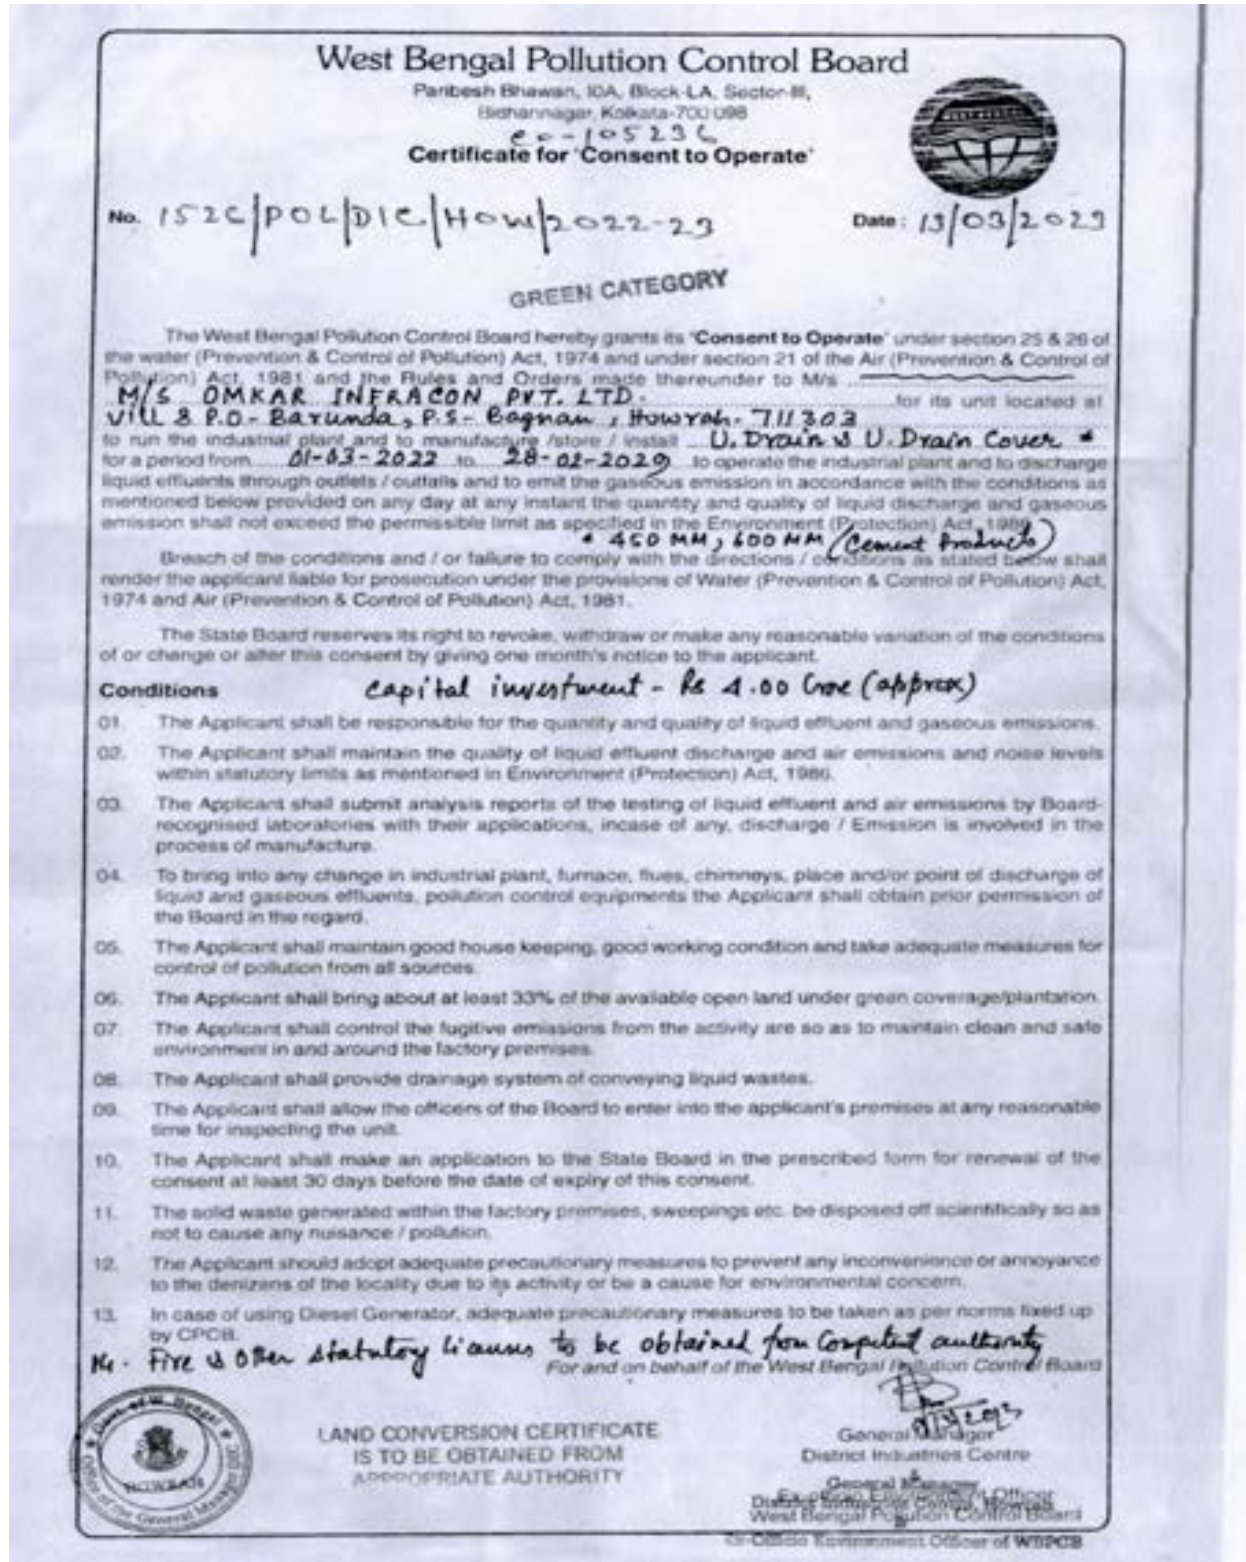 West Bengal Pollution Control Board
Paribesh Bhawan, 10A, Block-LA, Sector-III,
Bidhannagar, Kolkata-700 098
co-105236
Certificate for 'Consent to Operate'
No. 152C/POL/DIC/HOW/2022-23
Date : 13/03/2023
GREEN CATEGORY
The West Bengal Pollution Control Board hereby grants its 'Consent to Operate' under section 25 & 26 of
the water (Prevention & Control of Pollution) Act, 1974 and under section 21 of the Air (Prevention & Control of
Pollution) Act, 1981 and the Rules and Orders made thereunder to M/s
M/S OMKAR INFRACON PVT. LTD. for its unit located at
Vill & P.O- Barunda, P.S- Bagnan, Howrah- 711303
to run the industrial plant and to manufacture /store / install U. Drain & U. Drain Cover *
for a period from 01-03-2022 to 28-02-2029 to operate the industrial plant and to discharge
liquid effluents through outlets / outfalls and to emit the gaseous emission in accordance with the conditions as
mentioned below provided on any day at any instant the quantity and quality of liquid discharge and gaseous
emission shall not exceed the permissible limit as specified in the Environment (Protection) Act, 1986.
* 450 MM, 600 MM (Cement Products)
Breach of the conditions and / or failure to comply with the directions / conditions as stated below shall
render the applicant liable for prosecution under the provisions of Water (Prevention & Control of Pollution) Act,
1974 and Air (Prevention & Control of Pollution) Act, 1981.
The State Board reserves its right to revoke, withdraw or make any reasonable variation of the conditions
of or change or alter this consent by giving one month's notice to the applicant.
Conditions capital investment - Rs 4.00 Crore (approx)
01. The Applicant shall be responsible for the quantity and quality of liquid effluent and gaseous emissions.
02. The Applicant shall maintain the quality of liquid effluent discharge and air emissions and noise levels
within statutory limits as mentioned in Environment (Protection) Act, 1986.
03. The Applicant shall submit analysis reports of the testing of liquid effluent and air emissions by Board-
recognised laboratories with their applications, incase of any, discharge / Emission is involved in the
process of manufacture.
04. To bring into any change in industrial plant, furnace, flues, chimneys, place and/or point of discharge of
liquid and gaseous effluents, pollution control equipments the Applicant shall obtain prior permission of
the Board in the regard.
05. The Applicant shall maintain good house keeping, good working condition and take adequate measures for
control of pollution from all sources.
06. The Applicant shall bring about at least 33% of the available open land under green coverage/plantation.
07. The Applicant shall control the fugitive emissions from the activity are so as to maintain clean and safe
environment in and around the factory premises.
08. The Applicant shall provide drainage system of conveying liquid wastes.
09. The Applicant shall allow the officers of the Board to enter into the applicant's premises at any reasonable
time for inspecting the unit.
10. The Applicant shall make an application to the State Board in the prescribed form for renewal of the
consent at least 30 days before the date of expiry of this consent.
11. The solid waste generated within the factory premises, sweepings etc. be disposed off scientifically so as
not to cause any nuisance / pollution.
12. The Applicant should adopt adequate precautionary measures to prevent any inconvenience or annoyance
to the denizens of the locality due to its activity or be a cause for environmental concern.
13. In case of using Diesel Generator, adequate precautionary measures to be taken as per norms fixed up
by CPCB.
14. Fire & Other statutory licenses to be obtained from Competent authority
For and on behalf of the West Bengal Pollution Control Board
Govt. of W. Bengal
HOWRAH
Office of the General Manager
LAND CONVERSION CERTIFICATE
IS TO BE OBTAINED FROM
APPROPRIATE AUTHORITY
General Manager
District Industries Centre
General Manager
District Industries Centre, Howrah
Ex-officio Environment Officer
West Bengal Pollution Control Board
Ex-Officio Environment Officer of WBPCB